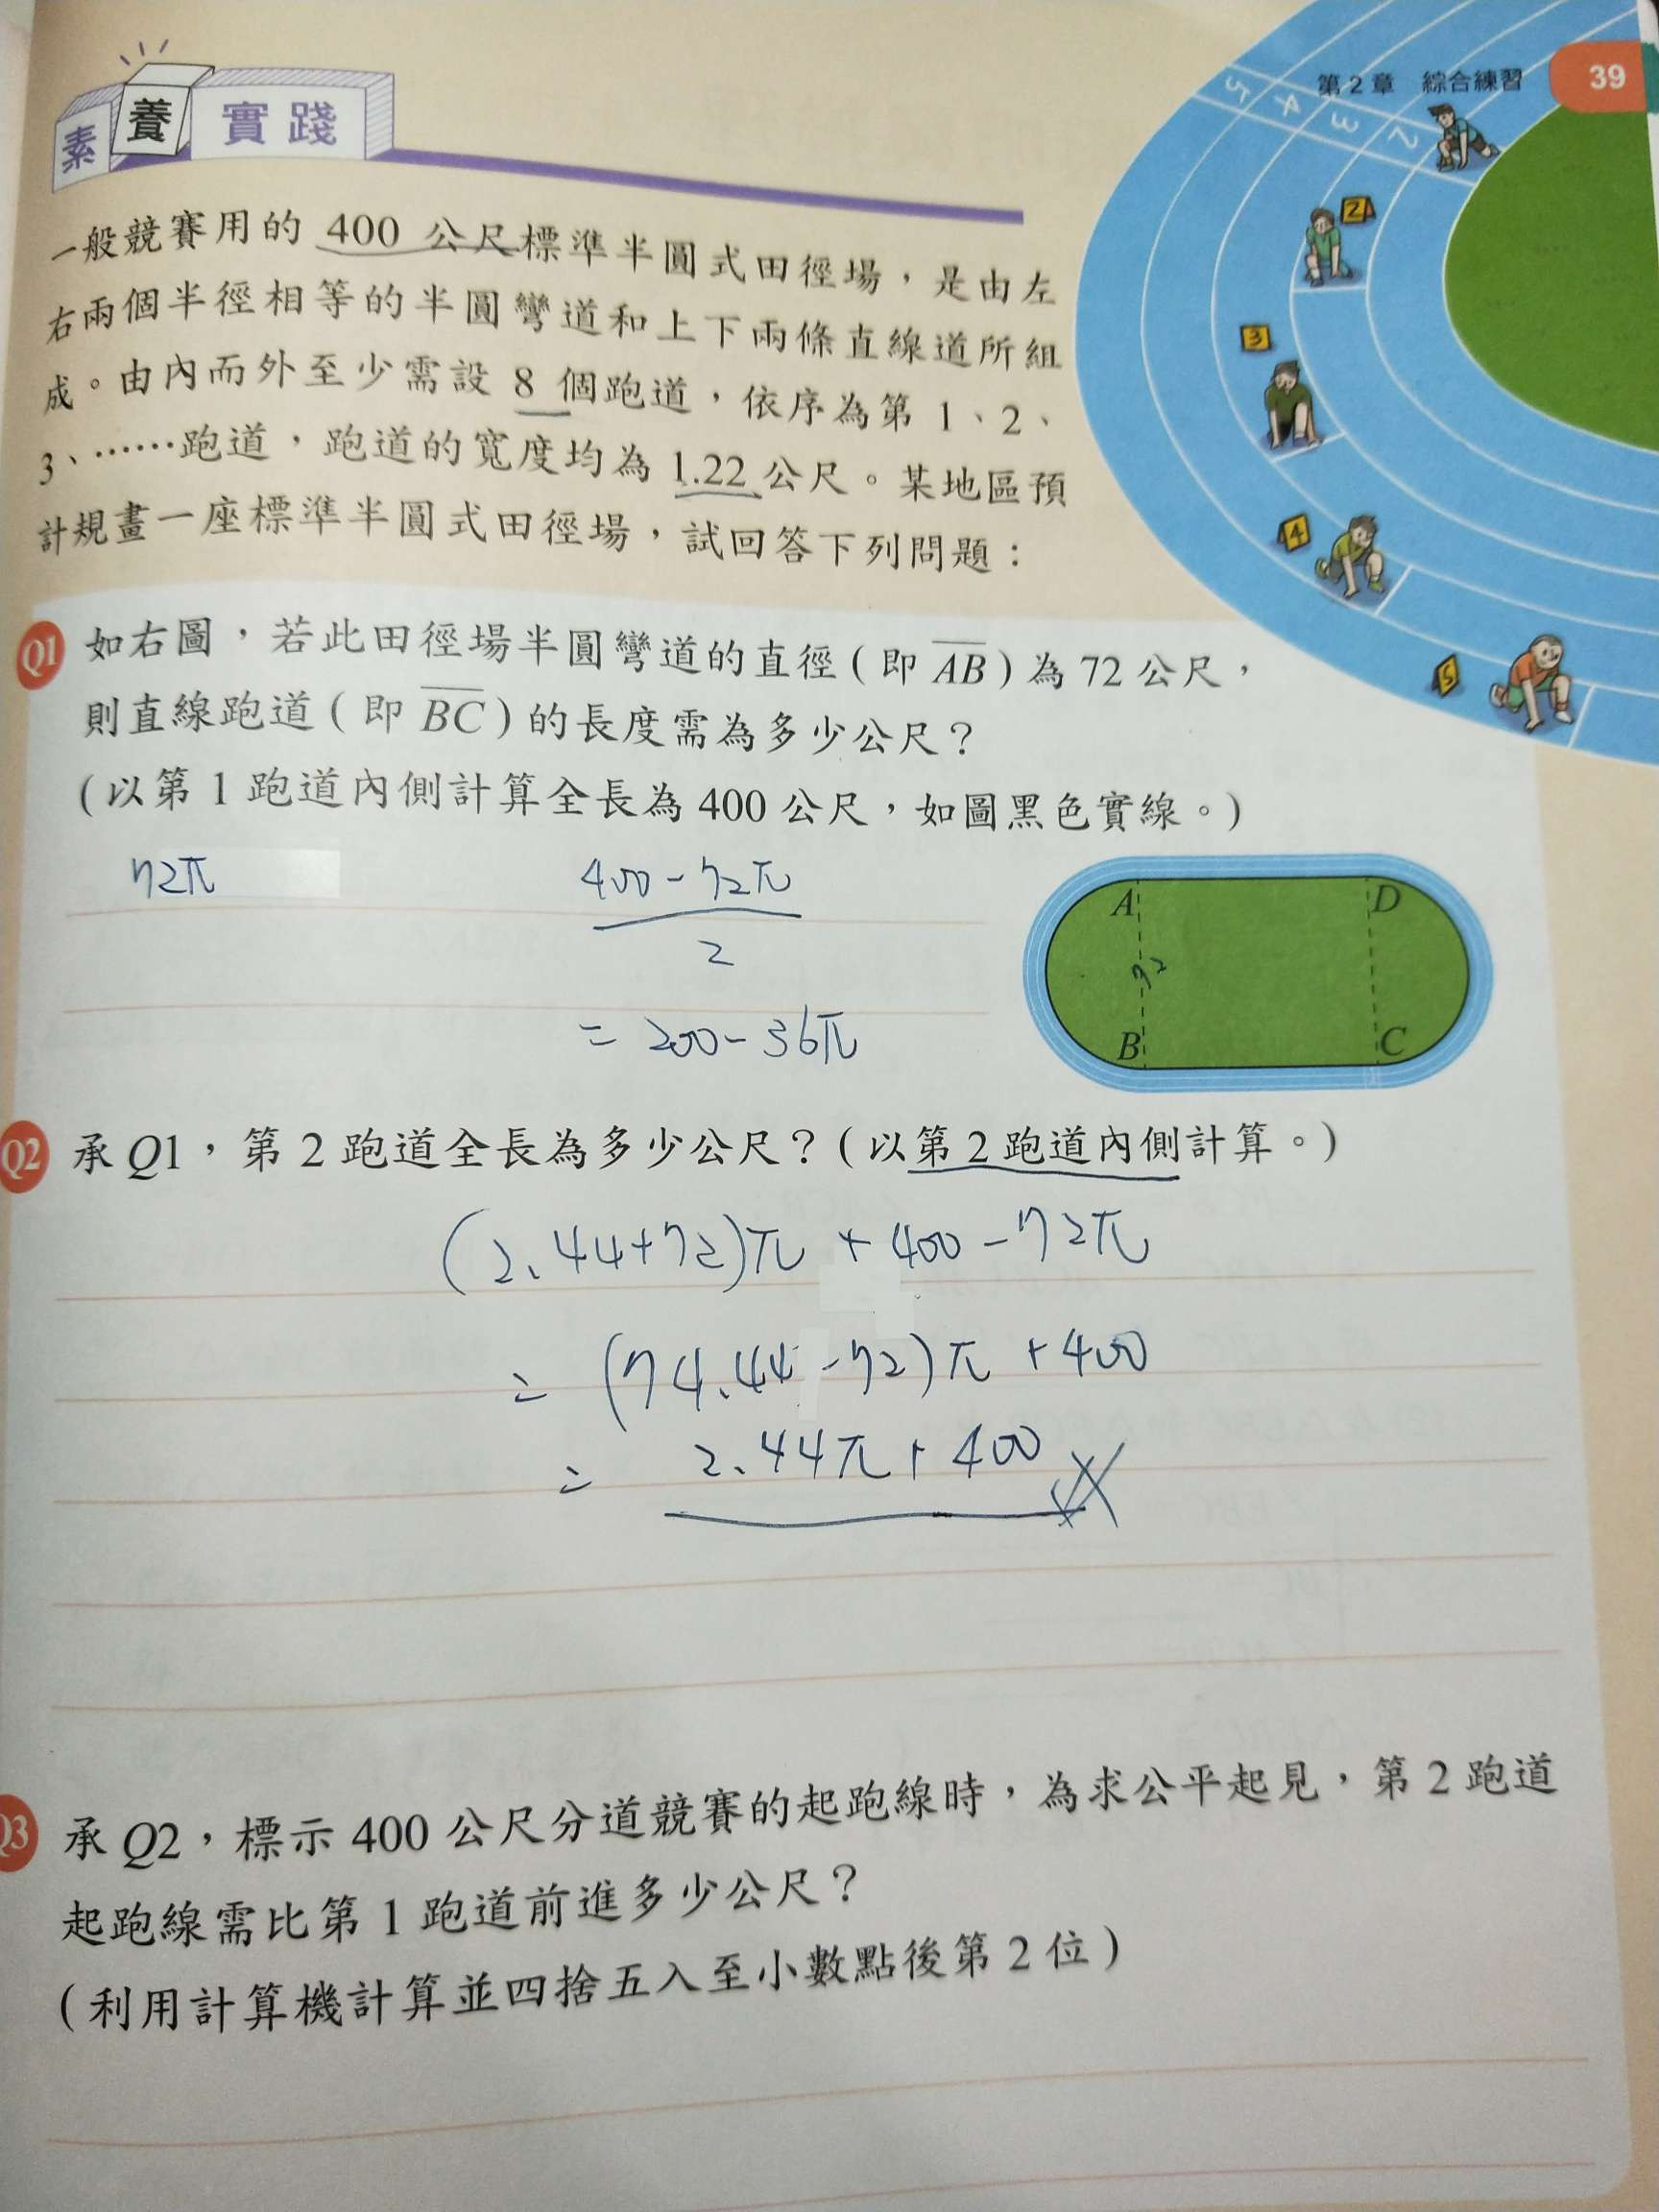 第2章 綜合練習 39
素養實踐
5 4 3 2
2
3
4
5
一般競賽用的 400 公尺標準半圓式田徑場，是由左
右兩個半徑相等的半圓彎道和上下兩條直線道所組
成。由內而外至少需設 8 個跑道，依序為第 1、2、
3、……跑道，跑道的寬度均為 1.22 公尺。某地區預
計規畫一座標準半圓式田徑場，試回答下列問題：
Q1 如右圖，若此田徑場半圓彎道的直徑(即 AB)為 72 公尺，
則直線跑道(即 BC)的長度需為多少公尺？
(以第 1 跑道內側計算全長為 400 公尺，如圖黑色實線。)
72π
400-72π
2
= 200-36π
A D
72
B C
Q2 承 Q1，第 2 跑道全長為多少公尺？(以第 2 跑道內側計算。)
(2.44+72)π + 400-72π
= (74.44-72)π +400
= 2.44π+400
Q3 承 Q2，標示 400 公尺分道競賽的起跑線時，為求公平起見，第 2 跑道
起跑線需比第 1 跑道前進多少公尺？
(利用計算機計算並四捨五入至小數點後第 2 位)